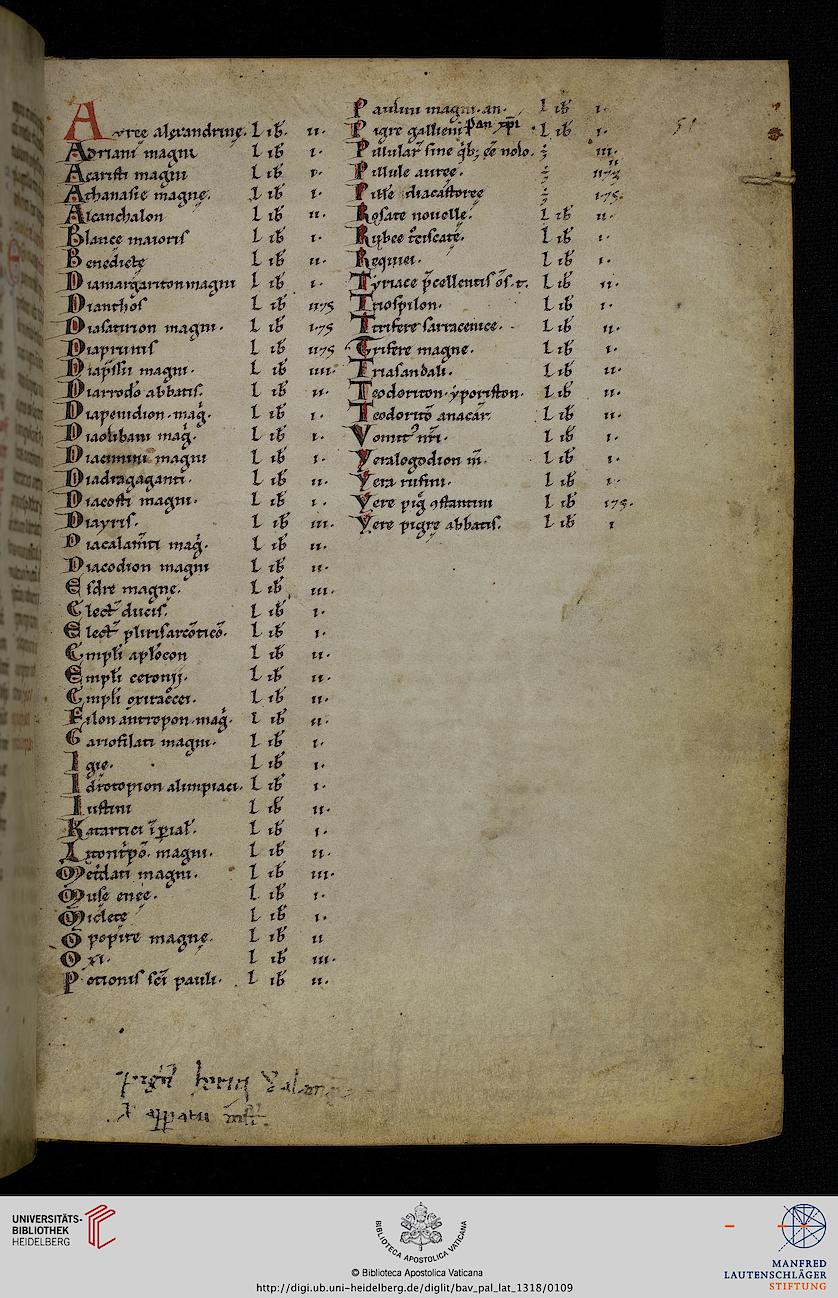 Auree alexandrine. Lib. ii.
Adriani magni Lib i.
Acaristi magni Lib i.
Athanasie magne. Lib i.
Alcanchalon Lib ii.
Blance maioris Lib i.
Benedicte Lib ii.
Diamargariton magni Lib i.
Dianthos Lib
Diasatirion magni. Lib
Diaprunis Lib
magni. Lib iiii.
Diarrodo abbatis. Lib ii.
Diapenidion. mag. Lib i.
Diaolibani mag. Lib i.
Diacimini magni Lib i.
Diadragaganti. Lib ii.
Diacosti magni. Lib i.
Diayris. Lib iii.
mag. Lib ii.
Diacodion magni Lib ii.
Esdre magne. Lib iii.
Elect ducis. Lib i.
Elect Lib i.
Empli Lib ii.
Empli ceronii. Lib ii.
Empli Lib ii.
Filon antropon. mag. Lib ii.
Gariofilati magni. Lib i.
Igie. Lib i.
Lib i.
Iustini Lib ii.
Katartici Lib i.
magni. Lib ii.
magni. Lib iii.
Muse enee. Lib i.
Miclete Lib i.
Opopire magne. Lib ii
Oxi. Lib iii.
Potionis sci pauli. Lib ii.
Paulini magni. an. Lib i.
Pigre gallieni Lib i.
Pillular sine qb; ee nolo. iii.
Pillule auree.
Pille diacastoree
Rosate nouelle. Lib ii.
Rubee Lib i.
Requiei. Lib i.
Tyriace Lib ii.
Triospilon. Lib i.
Trifere sarracenice. Lib ii.
Trifere magne. Lib i.
Triasandali. Lib ii.
Teodoriton. yporiston. Lib ii.
Teodorito anacar. Lib ii.
Lib i.
Yeralogodion m. Lib i.
Yera rufini. Lib i.
Yere pig Lib
Yere pigre abbatis. Lib i
UNIVERSITÄTS-
BIBLIOTHEK
HEIDELBERG
BIBLIOTECA APOSTOLICA VATICANA
© Biblioteca Apostolica Vaticana
http://digi.ub.uni-heidelberg.de/diglit/bav_pal_lat_1318/0109
MANFRED
LAUTENSCHLÄGER
STIFTUNG